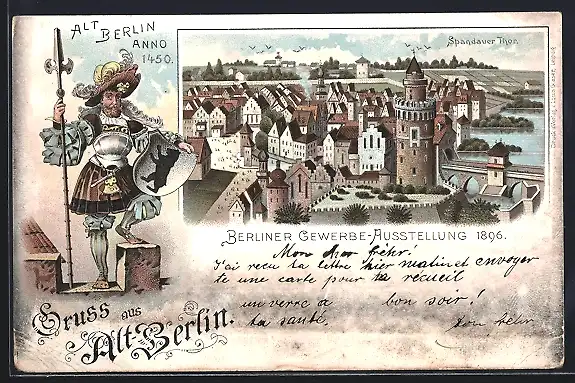 ALT
BERLIN
ANNO
1450.
Spandauer Thor.
BERLINER GEWERBE-AUSSTELLUNG 1896.
Mon cher frèhr!
J'ai reçu ta lettre hier matin et envoyer
te une carte pour ta recueil
un verre a bon soir!
ta santé.
ton frèhr.
Gruss aus
Alt-Berlin.